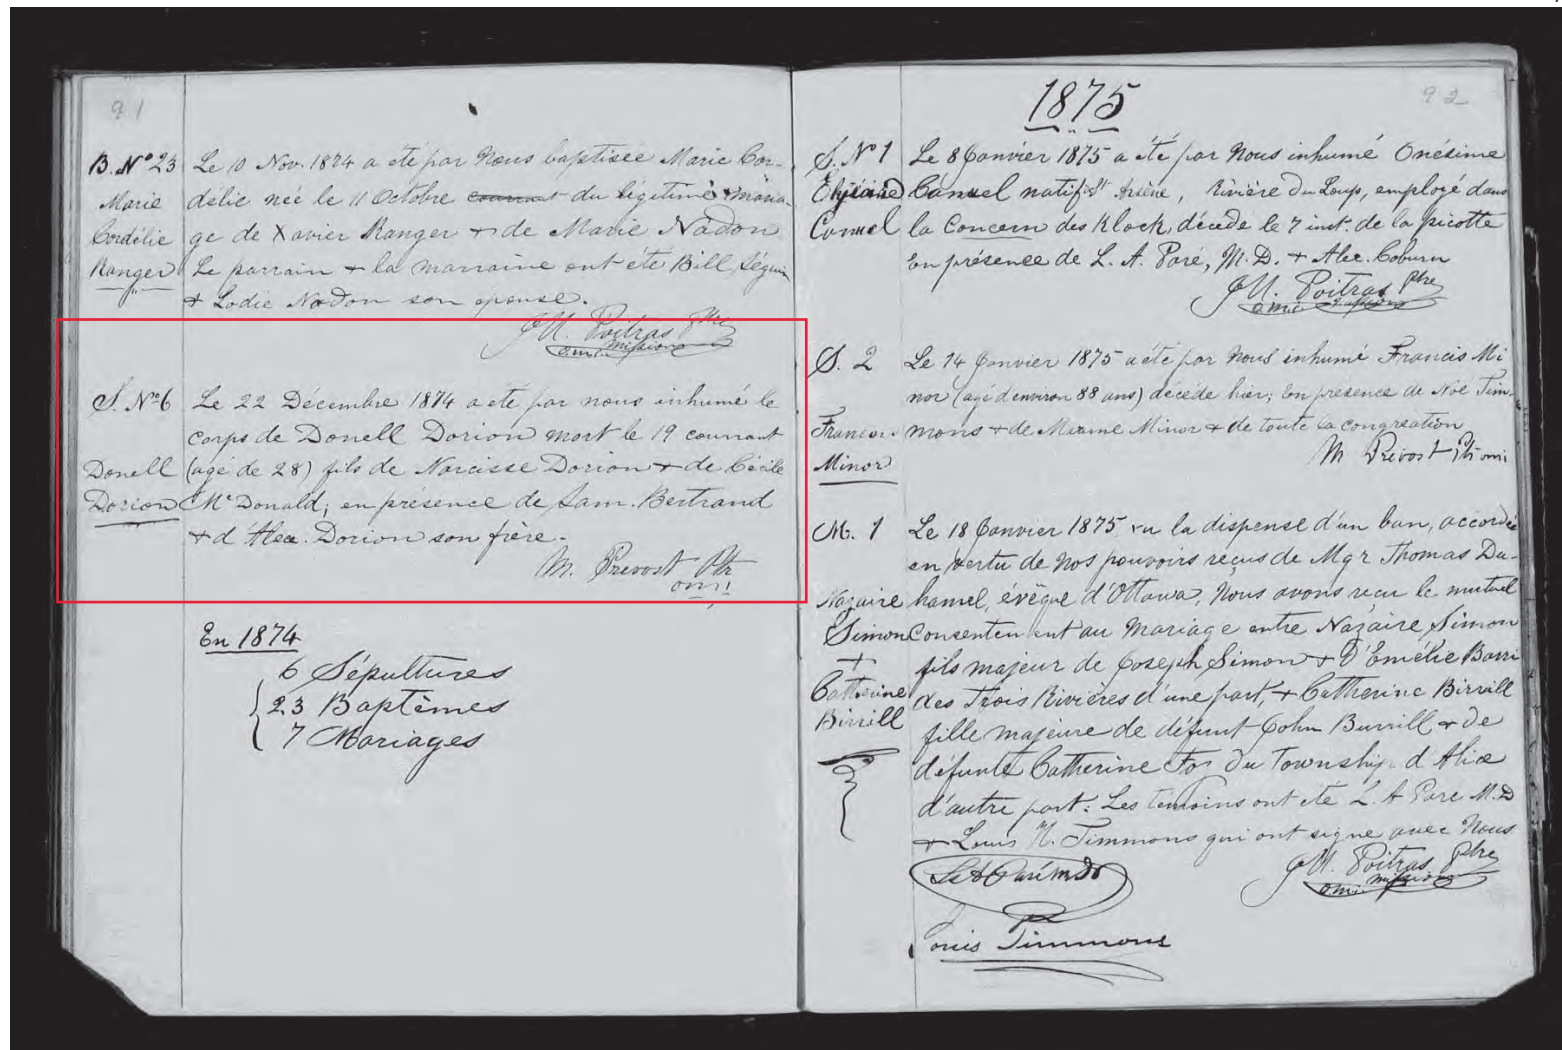 91
B. Nº 23
Marie
Cordélie
Ranger
Le 10 Nov. 1874 a été par Nous baptisée Marie Cor-
délie née le 11 Octobre courant du légitime maria-
ge de Xavier Ranger + de Marie Nadon
Le parrain + la marraine ont été Bill Séguin
+ Lodie Nadon son epouse.
J M. Poitras Ptre
o.m.i. missionn
S. Nº 6
Donell
Dorion
Le 22 Décembre 1874 a eté par nous inhumé le
corps de Donell Dorion mort le 19 courrant
(agé de 28) fils de Narcisse Dorion + de Cécile
Mc Donald; en présence de Sam. Bertrand
+ d'Alex. Dorion son frère.
M. Prevost Ptr
omi
En 1874
6 Sépultures
23 Baptêmes
7 Mariages
92
1875
S. Nº 1
Canuel
Le 8 Janvier 1875 a été par Nous inhumé Onésime
Canuel natif St Arsène, Rivière Du Loup, employé dans
la Concern des Klock, décédé le 7 inst. de la picotte
En présence de L. A. Paré, M.D. + Alec. Coburn
J M. Poitras Ptre
o.m.i. missionn
S. 2
Francis
Minor
Le 14 Janvier 1875 a été par Nous inhumé Francis Mi
nor (agé d'environ 88 ans) décédé hier; En présence de Noé Tim-
mons + de Mame Minor + de toute la congréation
M Prévost Ptr omi
M. 1
Nazaire
Simon
+
Catherine
Birrill
Le 18 Janvier 1875 vu la dispense d'un ban, accordée
en vertu de Nos pouvoirs reçus de Mgr Thomas Du-
hamel, évêque d'Ottawa, Nous avons reçu le mutuel
Consentement au Mariage entre Nazaire Simon
fils majeur de Joseph Simon + D'Emélie Barri
des Trois Rivières d'une part, + Catherine Birrill
fille majeure de défunt John Burrill + de
défunte Catherine Fox Du Township d'Alice
d'autre part. Les témoins ont été L. A Paré M.D
+ Louis N. Timmons qui ont signe avec Nous
J M. Poitras Ptre
o.m.i. missionn
L A Paré M D
Louis Timmons